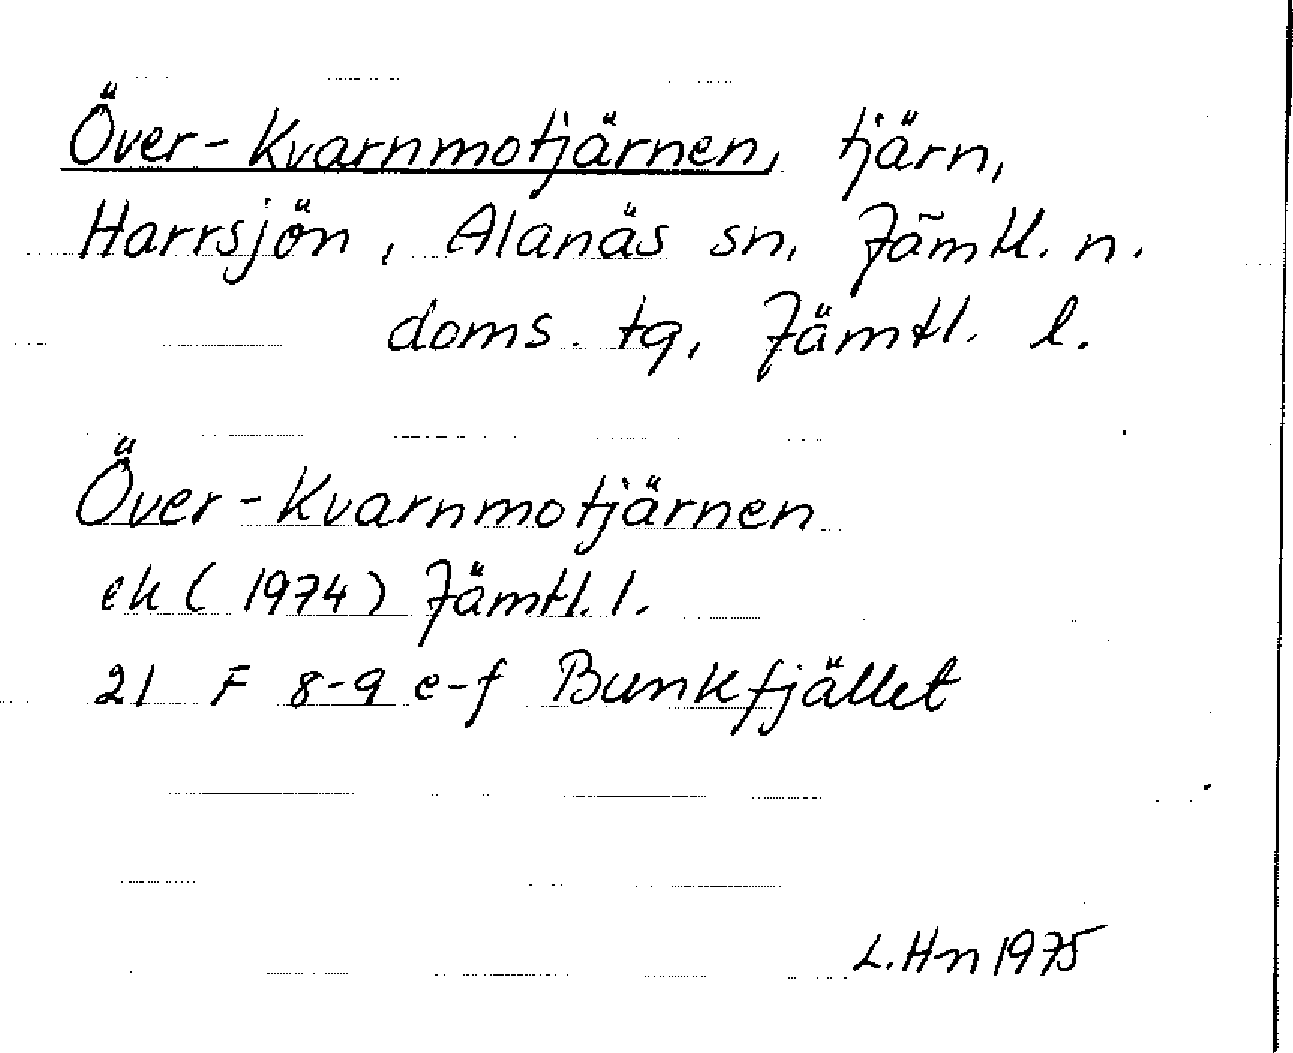 Över-Kvarnmotjärnen, tjärn,
Harrsjön, Alanäs sn, Jämtl. n.
doms. tg, Jämtl. l.
Över-Kvarnmotjärnen
ek (1974) Jämtl. l.
21 F 8-9 e-f Bunkfjället
L. Hn 1975